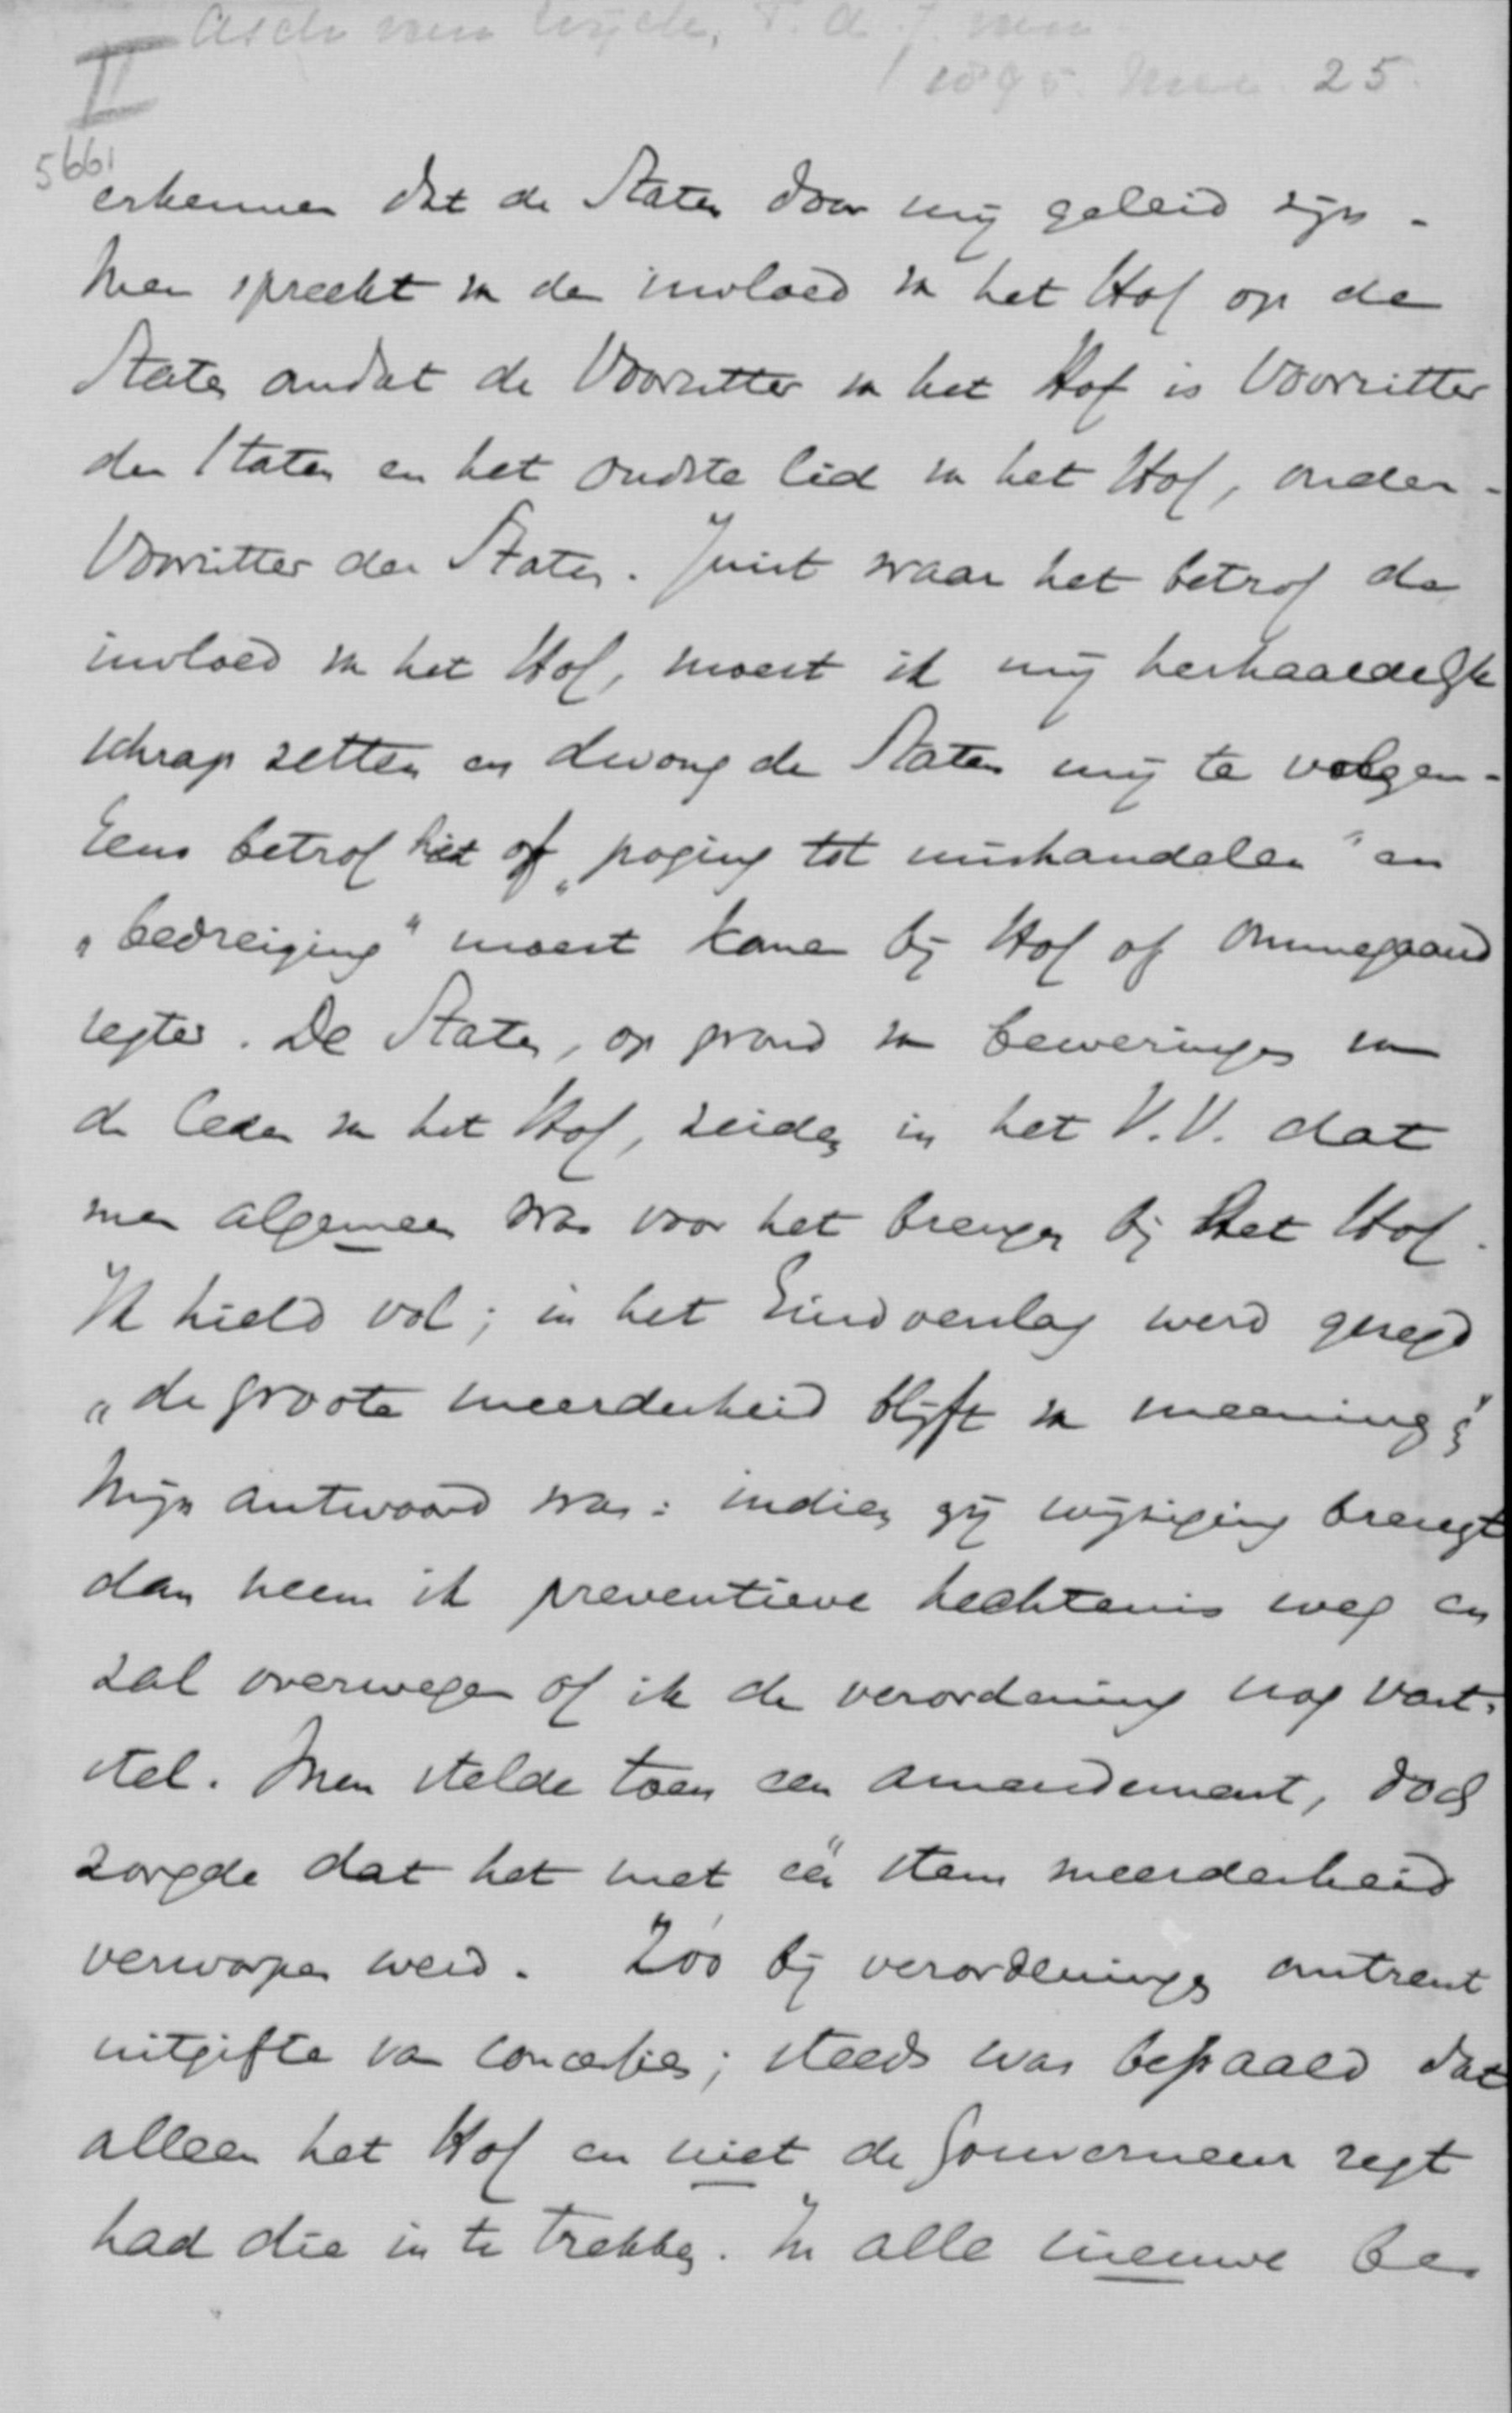 Asch van Wijck, T. A. J. van
II 1895. 25.
5661
erkennen dat de Staten door mij geleid zijn -
Men spreekt v. den invloed v. het Hof op de
Staten omdat de Voorzitter v. het Hof is Voorzitter
der Staten en het oudste lid v. het Hof, onder-
Voorzitter der Staten. Juist waar het betrof de
invloed v. het Hof, moest ik mij herhaaldelijk
schrap zetten en dwong de Staten mij te volgen -
Eens betrof het of „poging tot mishandelen" en
„bedreiging" moest komen bij Hof of Ommegaand
regter. De Staten, op grond v. beweringen van
de leden v. het Hof, zeiden in het V.V. dat
men algemeen was voor het brengen bij het Hof.
Ik hield vol; in het Eindverslag werd gezegd
„de groote meerderheid blijft v. meening;"
Mijn antwoord was: indien gij wijziging brengt
dan neem ik preventieve hechtenis weg en
zal overwegen of ik de verordening nog vast-
stel. Men stelde toen een amendement, doch
zorgde dat het met één stem meerderheid
verworpen werd. Zóó bij verordeningen omtrent
uitgifte van concessies; steeds was bepaald dat
alleen het Hof en niet de Gouverneur regt
had die in te trekken. In alle nieuwe be-